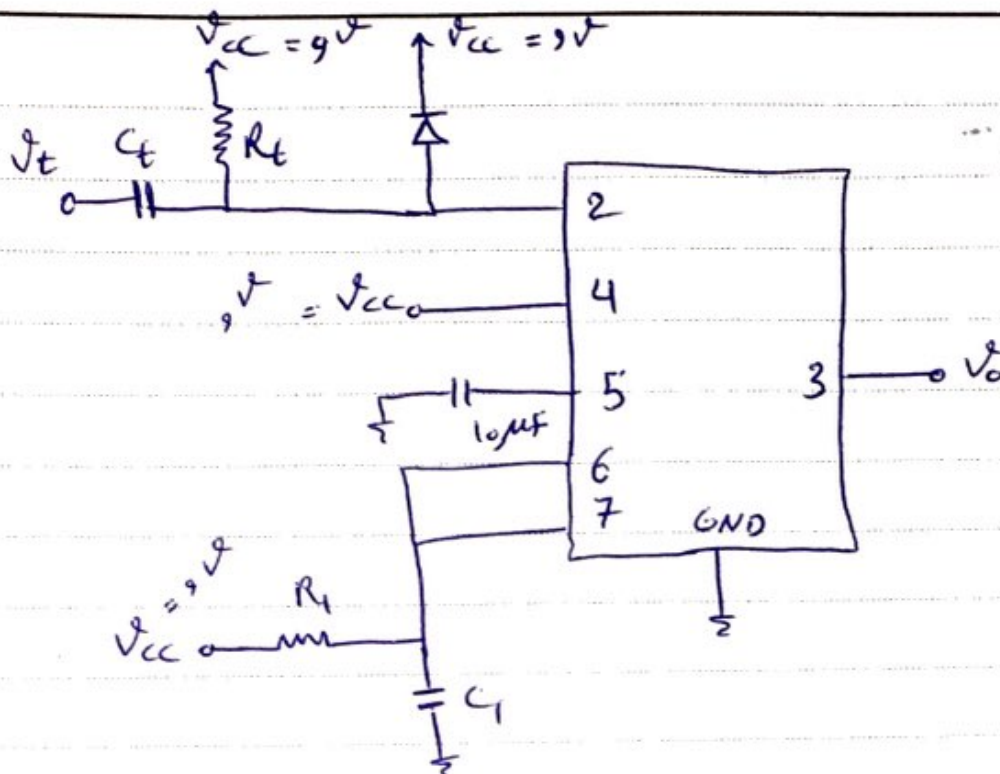 Vcc = 9V
Vcc = 9V
Vt
Ct
Rt
2
9V = Vcc
4
5
3
Vo
10µF
6
7
GND
Vcc = 9V
R1
C1